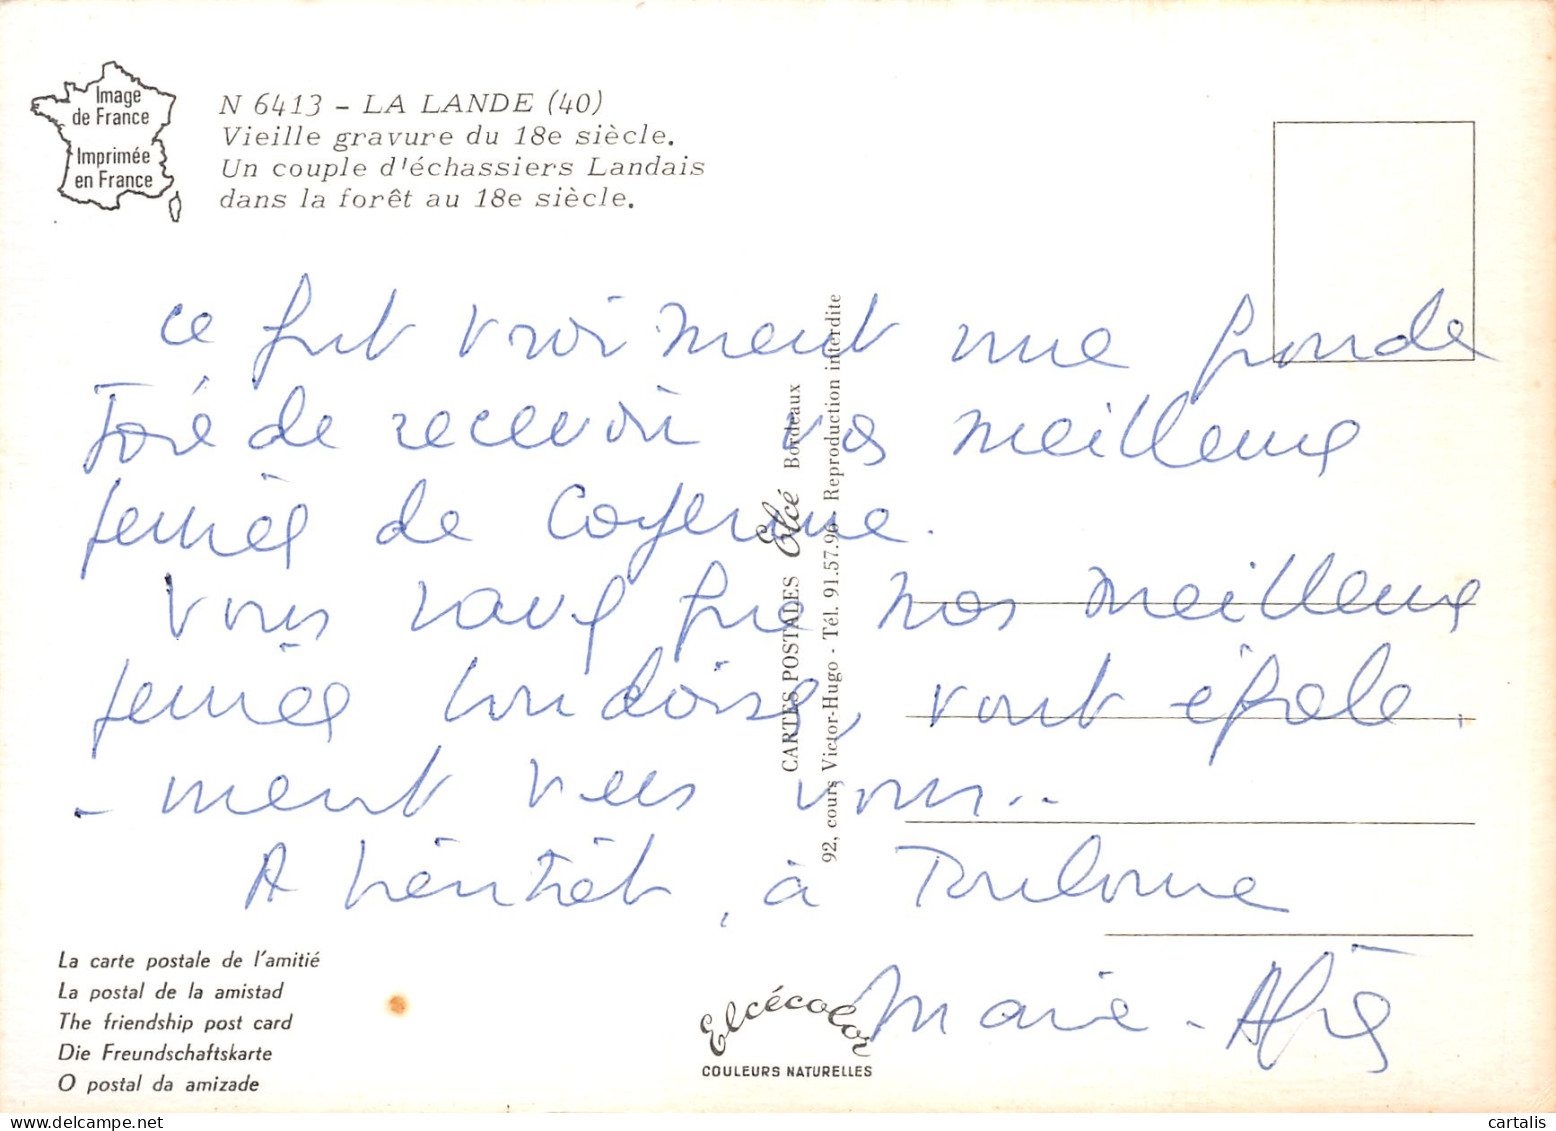 Image
de France
Imprimée
en France
N 6413 - LA LANDE (40)
Vieille gravure du 18e siècle.
Un couple d'échassiers Landais
dans la forêt au 18e siècle.
ce fut vraiment une grande
joie de recevoir vos meilleures
pensées de Cayenne.
Vous savez que nos meilleures
pensées landaises, vont égale-
-ment vers vous...
A bientôt, à Toulouse
Marie-
CARTES POSTALES Elcé Bordeaux
92, cours Victor-Hugo - Tél. 91.57.96 - Reproduction interdite
La carte postale de l'amitié
La postal de la amistad
The friendship post card
Die Freundschaftskarte
O postal da amizade
Elcécolor
COULEURS NATURELLES
cartalis